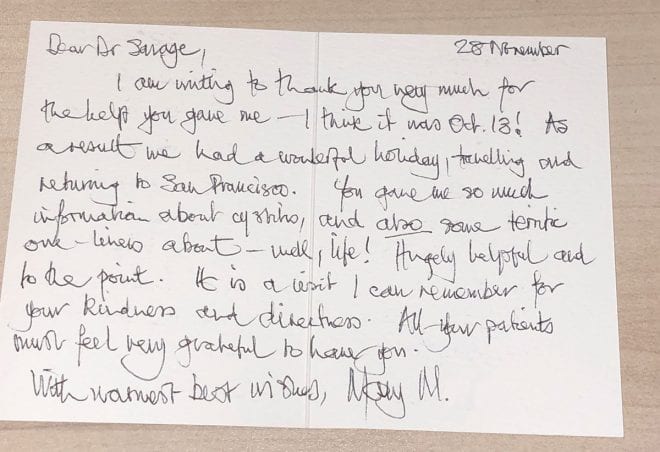 Dear Dr Savage,
28 November
I am writing to thank you very much for
the help you gave me – I think it was Oct. 13! As
a result we had a wonderful holiday, travelling and
returning to San Francisco. You gave me so much
information about cystitis, and also some terrific
one-liners about – well, life! Hugely helpful and
to the point. It is a visit I can remember for
your kindness and directness. All your patients
must feel very grateful to have you.
With warmest best wishes, Mary M.